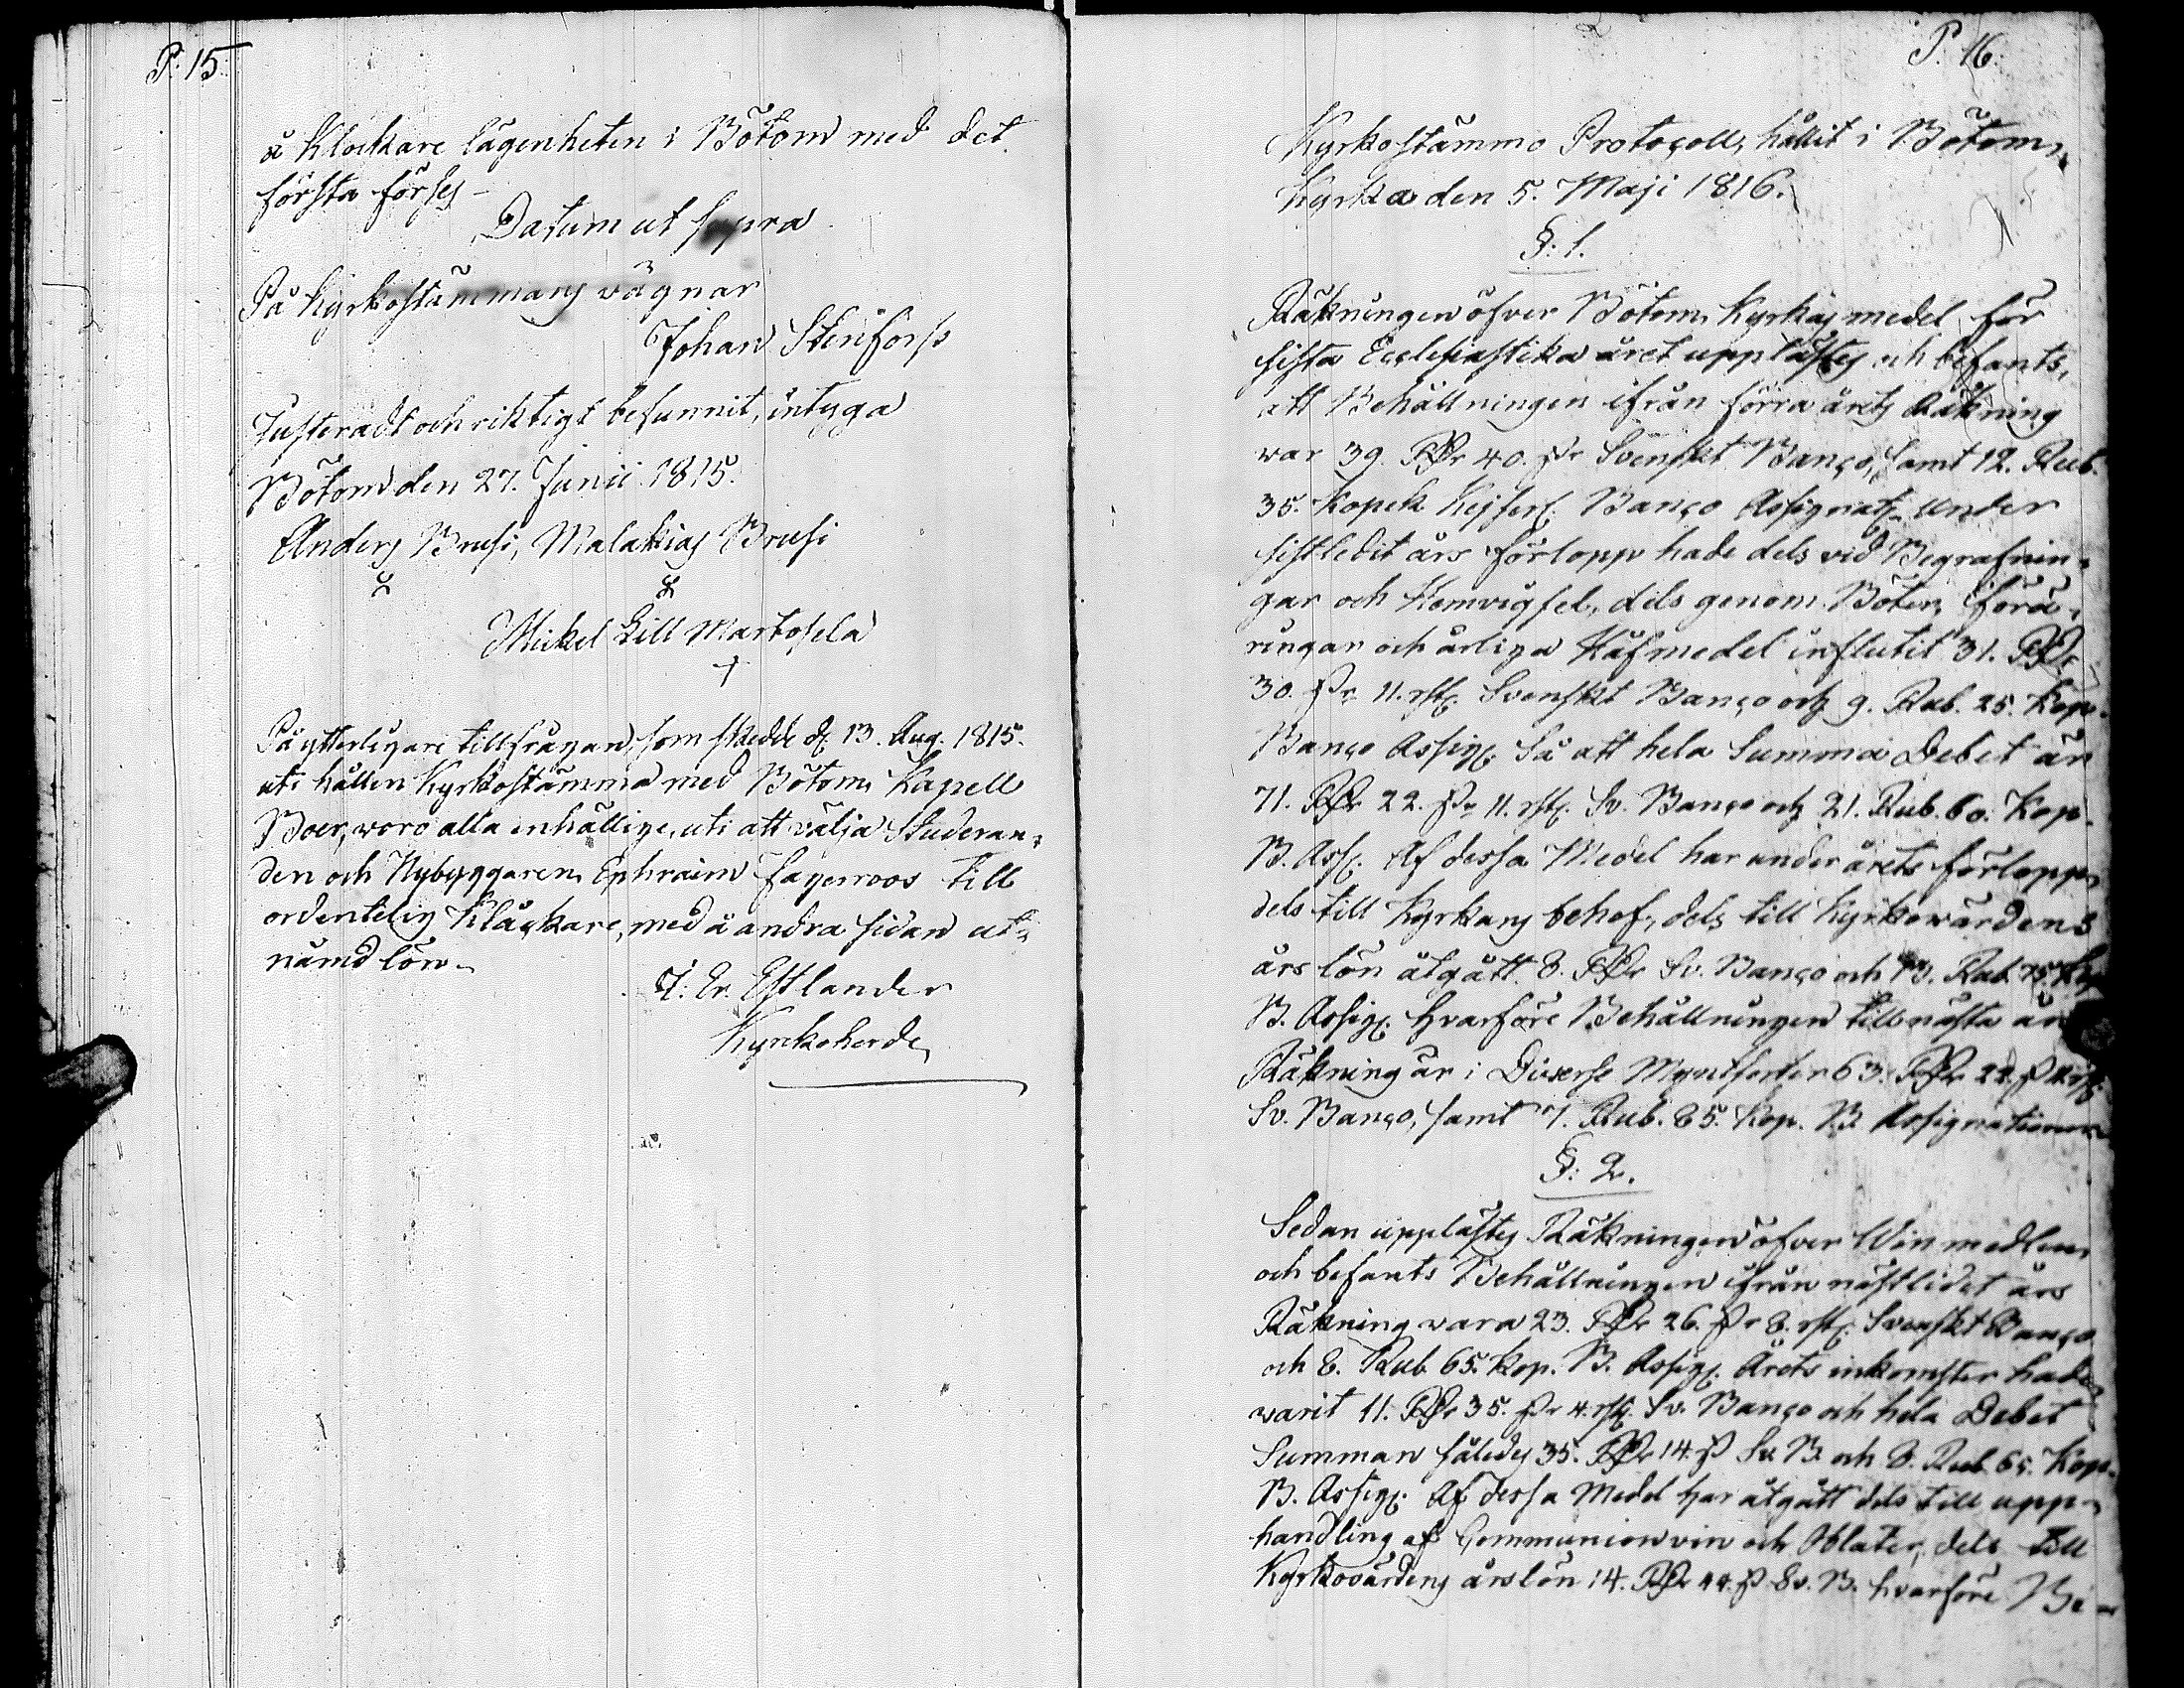 P. 15
å Klockare lägenheten i Bötom med det
första förses –
Datum ut supra
På Kyrkostämmans vägnar
Johan Stenforss
Justeradt och riktigt befunnit, intyga
Bötom den 27. Junii 1815.
Anders Brusi, Malakias Brusi
Mickel Lill Martosela
+
På ytterligare tillfrågan, som skedde d. 13. Aug. 1815.
uti hållen Kyrkostämma med Bötoms Kapell
Boer, woro alla enhällige, uti att välja Studeran=
den och Nybyggaren Ephraim Fagerroos till
ordentelig Klåckare, med å andra sidan ut=
nämd lön.
J. Er. Estlander
Kyrkoherde
P. 16.
Kyrkostämmo Protocoll, hållit i Bötoms
Kyrka den 5. Maji 1816.
§: 1.
Räkningen öfver Bötoms Kyrkas medel för
sista Ecclesiastika året upplästes och befants,
att Behållningen ifrån förra årets Räkning
war 39. RDr 40. s. Svenskt Banco, samt 12. Rub.
35. Kopek Kejserl. Banco Assignat. Under
sistledit års förlopp hade dels vid Begrafnin=
gar och Hemvigsel, dels genom Böter, förä=
ringar och årliga Håfmedel influtit 31. RDr
30. s. 11. rst. Svenskt Banco och 9. Rub. 25. Kop.
Banco Assign. Så att hela Summa Debet är
71. RDr 22. s. 11. rst. Sv. Banco och 21. Rub. 60. Kop.
B. Ass. Af dessa Medel har under årets förlopp
dels till Kyrkans behof, dels till Kyrkowärdens
års lön åtgått 8. RDr Sv. Banco och 13. Rub. 75. Kop
B. Assign. Hvarföre Behållningen till nästa år
Räkning är i Diverse Myntsorter 63. RDr 22. s. 11 rst.
Sv. Banco, samt 7. Rub. 85. Kop. B. Assignationer
§: 2.
Sedan upplästes Räkningen öfver Vin medlen,
och befants Behållningen ifrån nästlidet års
Räkning vara 23. RDr 26. s. 8. rst. Svenskt Banco
och 8. Rub. 65. Kop. B. Assign. Årets inkomster hade
warit 11. RDr 35. s. 4. rst. Sv. Banco och hela Debet
Summan således 35. RDr 14. s. Sv. B. och 8. Rub. 65. Kop.
B. Assign. Af dessa Medel har åtgått dels till upp=
handling af Communion vin och Oblater, dels till
Kyrkovärdens årslön 14. RDr 44. s. Sv. B. hvarföre Be-